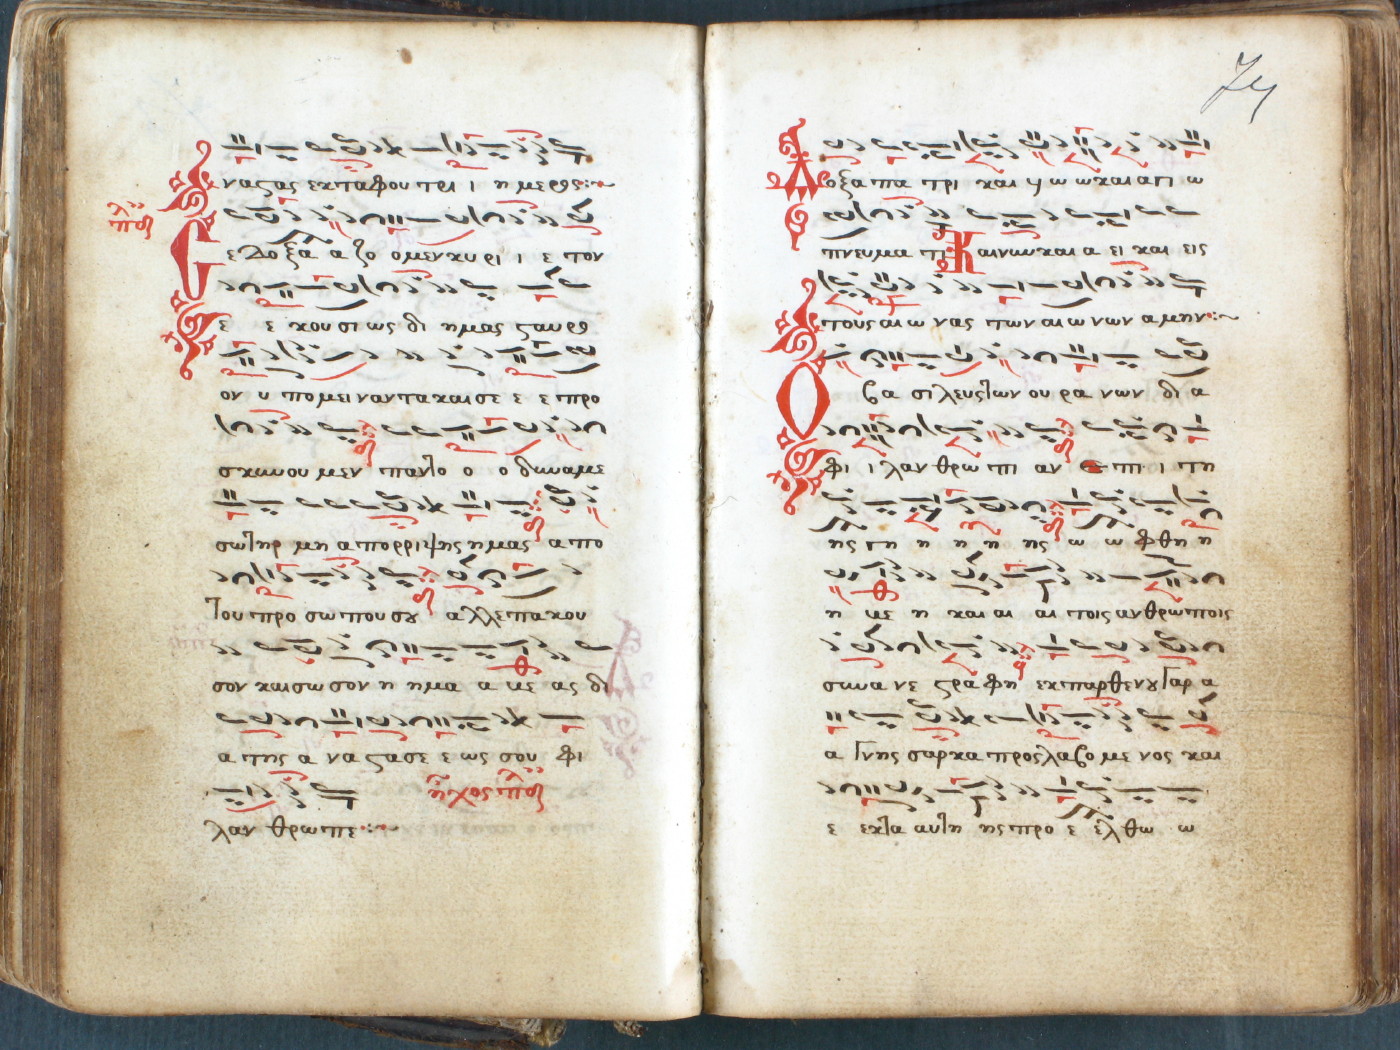 να ϛας εκ τα φου τρι ι η με ρος
πλ
Σε δο ξα α ζο ο μεν κυ ρι ι ε τον
ε ε κου σι ως δι η μας ϛαυρο
ον υ πο μει ναν τα και σε ε ε προ
σκυνου μεν παντο ο ο δυναμε
σωτηρ μη α πορριψης η μας α πο
του προ σω που σου αλλ επακου
σον και σω σον η ημα α με ας δι
α της α να ϛασε ε ως σου φι
λαν θρω πε
ηχος πλ
74
Δοξα πα τρι και υ ω ω και α γι ω
πνευμα τι Και νυν και α ει και εις
τους αι ω νας των αι ω νων α μην
Ο βα σι λευς των ου ρα νων δι α
φι ι λαν θρω πι αν ε πι ι τη
ης γη η η η ης ω ω φθη η
η με η και αι αι τοις αν θρωποις
συν α νε ϛρα φη εκ παρθενου γαρ α
α γνης σαρκα προσλαβο με νος και
ε εκ τα αυτη ης προ ε ελ θω ω